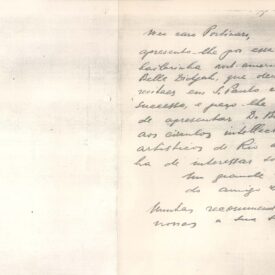 meu caro Portinari,
apresento-lhe por esse
bailarinha nort-amer
Bella Didjah, que de
recitaes em S. Paulo
successo, e peço-lhe
de apresentar D. B
aos circulos intellec
artisticos do Rio
ha de interessar
Um grande
do amigo
Muitas recommend
nossas a sua